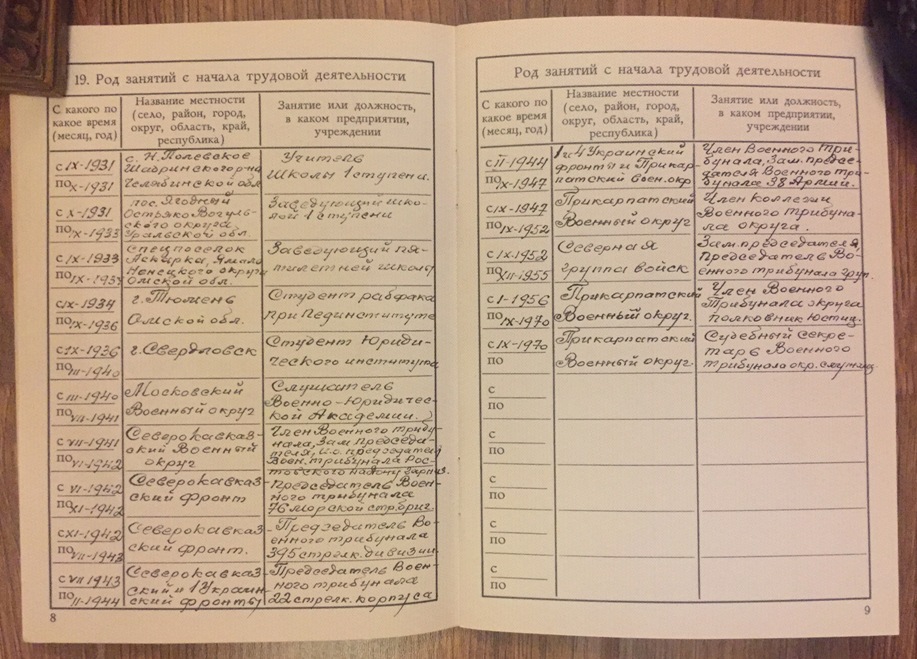 19. Род занятий с начала трудовой деятельности
С какого по
какое время
(месяц, год)
Название местности
(село, район, город,
округ, область, край,
республика)
Занятие или должность,
в каком предприятии,
учреждении
с IX-1931
по X-1931
с. Н. Полевское
Шадринского р-на
Челябинской обл.
Учитель
школы 1 ступени.
с X-1931
по IX-1933
пос. Ягодный
Остряко Вогуль-
ского округа
Уральской обл.
Заведующий шко-
лой 1 ступени
с IX-1933
по IX-1934
Спецпоселок
Аксарка, Ямало
Ненецкого округа
Омской обл.
Заведующий пя-
тилетней школы
с IX-1934
по IX-1936
г. Тюмень
Омской обл.
Студент рабфака
при Пединституте
с IX-1936
по III-1940
г. Свердловск
Студент Юриди-
ческого института
с III-1940
по VII-1941
Московский
Военный округ
Слушатель
Военно-Юридичес-
кой Академии.
с VII-1941
по VI-1942
Северокавказ-
ский Военный
округ
Член Военного трибу-
нала, зам. председа-
теля, и.о. председателя
Воен. трибунала Рос-
товского гарниз.
с VI-1942
по XI-1942
Северокавказ-
ский фронт
Председатель Воен-
ного трибунала
76 морской стр. бриг.
с XI-1942
по VII-1943
Северокавказ-
ский фронт.
Председатель Во-
енного трибунала
395 стрелк. дивизии
с VII 1943
по II-1944
Северокавказ-
ский и 1 Украин-
ский фронты
Председатель Воен-
ного трибунала
22 стрелк. корпуса
8
Род занятий с начала трудовой деятельности
С какого по
какое время
(месяц, год)
Название местности
(село, район, город,
округ, область, край,
республика)
Занятие или должность,
в каком предприятии,
учреждении
с II-1944
по IX-1947
1 и 4 Украинский
фронты и Прикар-
патский воен. окр.
Член Военного Три-
бунала, Зам. предсе-
дателя Военного три-
бунала 38 Армии.
с IX-1947
по IX-1952
Прикарпатский
Военный Округ
Член коллегии
Военного трибуна-
ла округа.
с IX-1952
по XII-1955
Северная
группа войск
Зам. председателя,
Председатель Во-
енного трибунала груп.
с I-1956
по IX-1970
Прикарпатский
Военный округ.
Член Военного
Трибунала округа
полковник юстиц.
с IX-1970
по
Прикарпатский
Военный округ.
Судебный секре-
тарь Военного
трибунала окр. служащ
с
по
с
по
с
по
с
по
с
по
9